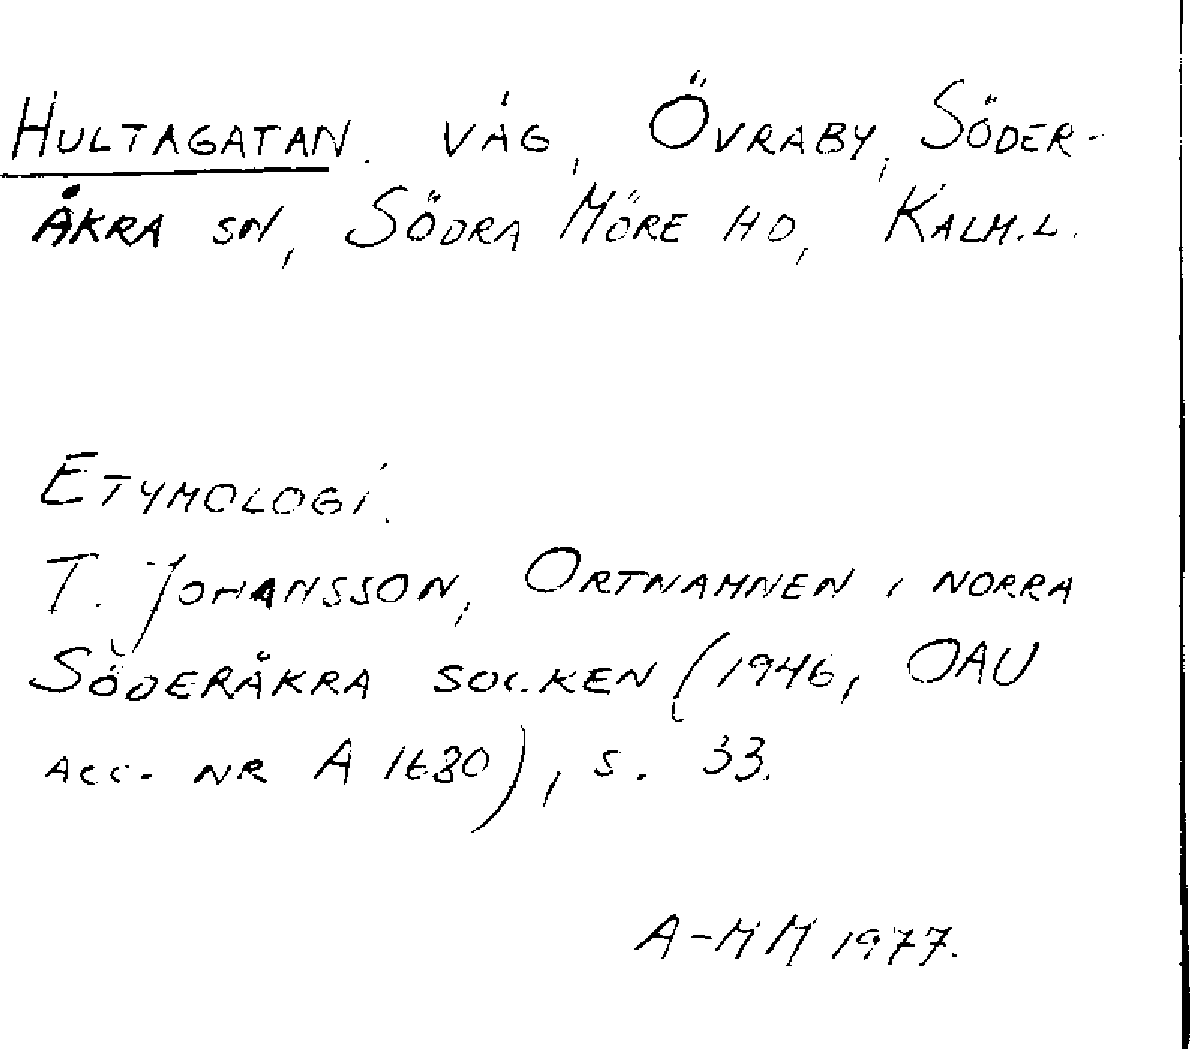 HULTAGATAN. VÄG, ÖVRABY, SÖDER-
ÅKRA SN, SÖDRA MÖRE HD, KALM.L.
ETYMOLOGI.
T. JOHANSSON, ORTNAMNEN I NORRA
SÖDERÅKRA SOCKEN (1946, OAU
ACC. NR A 1680), S. 33.
A-MM 1977.